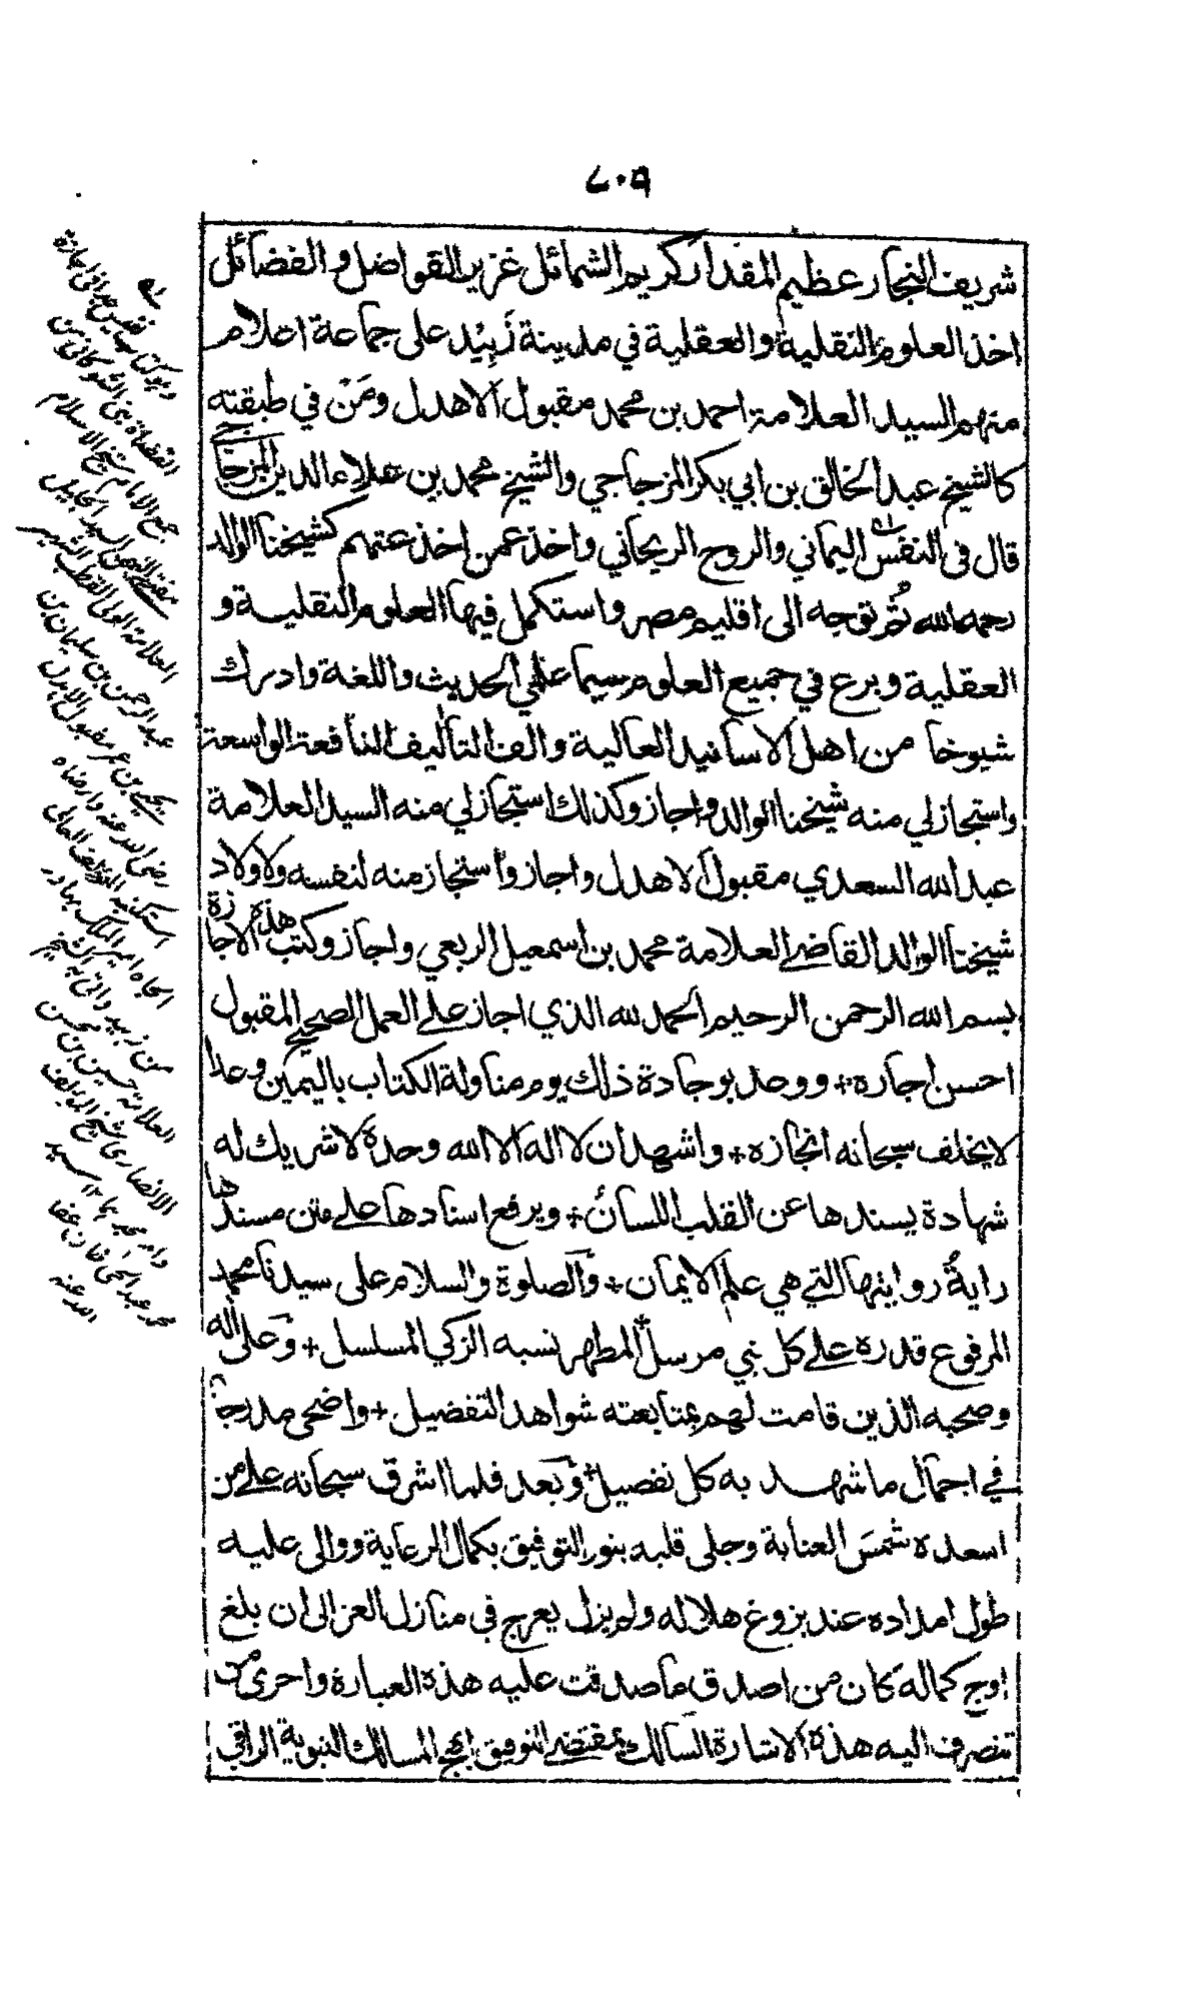 ٧٠٩
شريف النجار عظيم المقدار كريم الشمائل غزير الفواضل والفضائل
اخذ العلوم النقلية والعقلية في مدينة زَبِيْد على جماعة اعلام
منهم السيد العلامة احمد بن محمد مقبول الاهدل ومَنْ في طبقته
كالشيخ عبد الخالق بن ابي بكر المزجاجي والشيخ محمد بن علاء الدين المزجاجي
قال فى النفس اليماني والروح الريحاني واخذ عمن اخذ عنهم كشيخنا الوالد
رحمه الله ثُم توجه الى اقليم مصر واستكمل فيها العلوم النقلية و
العقلية وبرع في جميع العلوم سيما علمي الحديث واللغة وادرك
شيوخا من اهل الاسانيد العالية والف التآليف النافعة الواسعة
واستجاز لي منه شيخنا الوالد واجاز وكذلك استجاز لي منه السيد العلامة
عبد الله السعدي مقبول الاهدل واجاز واستجاز منه لنفسه ولاولاد
شيخنا الوالد القاضي العلامة محمد بن اسمعيل الربعي واجاز وكتب هذه الاجازة
بسم الله الرحمن الرحيم الحمد لله الذي اجاز على العمل الصحيح المقبول
احسن اجازه + ووعد بوجادة ذلك يوم مناولة الكتاب باليمين وعدا
لا يخلف سبحانه انجازه + واشهد ان لا اله الا الله وحده لا شريك له
شهادة يسندها عن القلب اللسان + ويرفع اسنادها على متن مسندها
رايةُ روايتها التي هي علم الايمان + والصلوة والسلام على سيدنا محمد
المرفوع قدره على كل نبي مرسل + المطهر نسبه الزكي المسلسل + وعلى اله
وصحبه الذين قامت لهم بمتابعته شواهد التفضيل + واضحى مدرجا
في اجمال ما شهد به كل تفصيل + وبعد فلما اشرق سبحانه على من
اسعده شمسَ العناية وجلى قلبه بنور التوفيق بكمال الرعاية ووالى عليه
طول امداده عند بزوغ هلاله ولم يزل يعرج في منازل العز الى ان بلغ
اوج كماله كان من اصدق ما صدقت عليه هذه العبارة واحرى من
تنصرف اليه هذه الاشارة السالك بمقتضى التوفيق ابهج المسالك النبوية الراقي
القضاة بنى الشوكانى من
العلامة الولى القطب الشهير
عبد الرحمن بن سليمان بن
يحيى بن عمر مقبول الاهدل
رضى الله عنه وارضاه
من زبيد واتى به الشيخ
العلامة حسين بن محسن
الانصارى
عبد الحى خان عفا
الله عنه